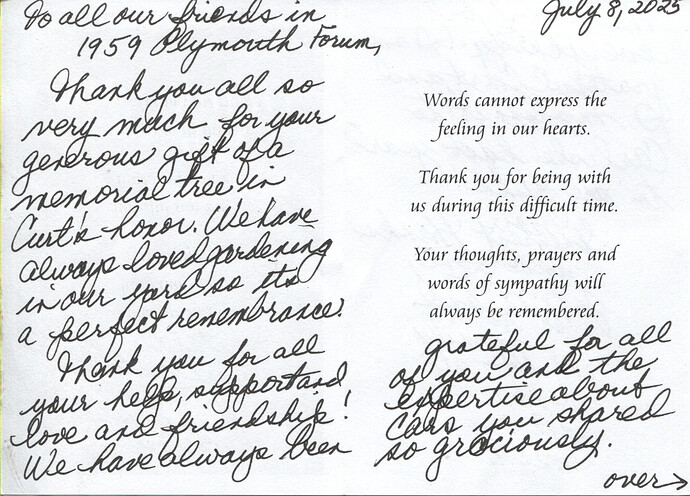 To all our friends in
1959 Plymouth Forum,
Thank you all so
very much for your
generous gift of a
memorial tree in
Curt's honor. We have
always loved gardening
in our yard so its
a perfect renembrance.
Thank you for all
your help, support and
love and friendship!
We have always been
July 8, 2025
Words cannot express the
feeling in our hearts.
Thank you for being with
us during this difficult time.
Your thoughts, prayers and
words of sympathy will
always be remembered.
grateful for all
of you and the
expertise about
cars you shared
so graciously.
over→